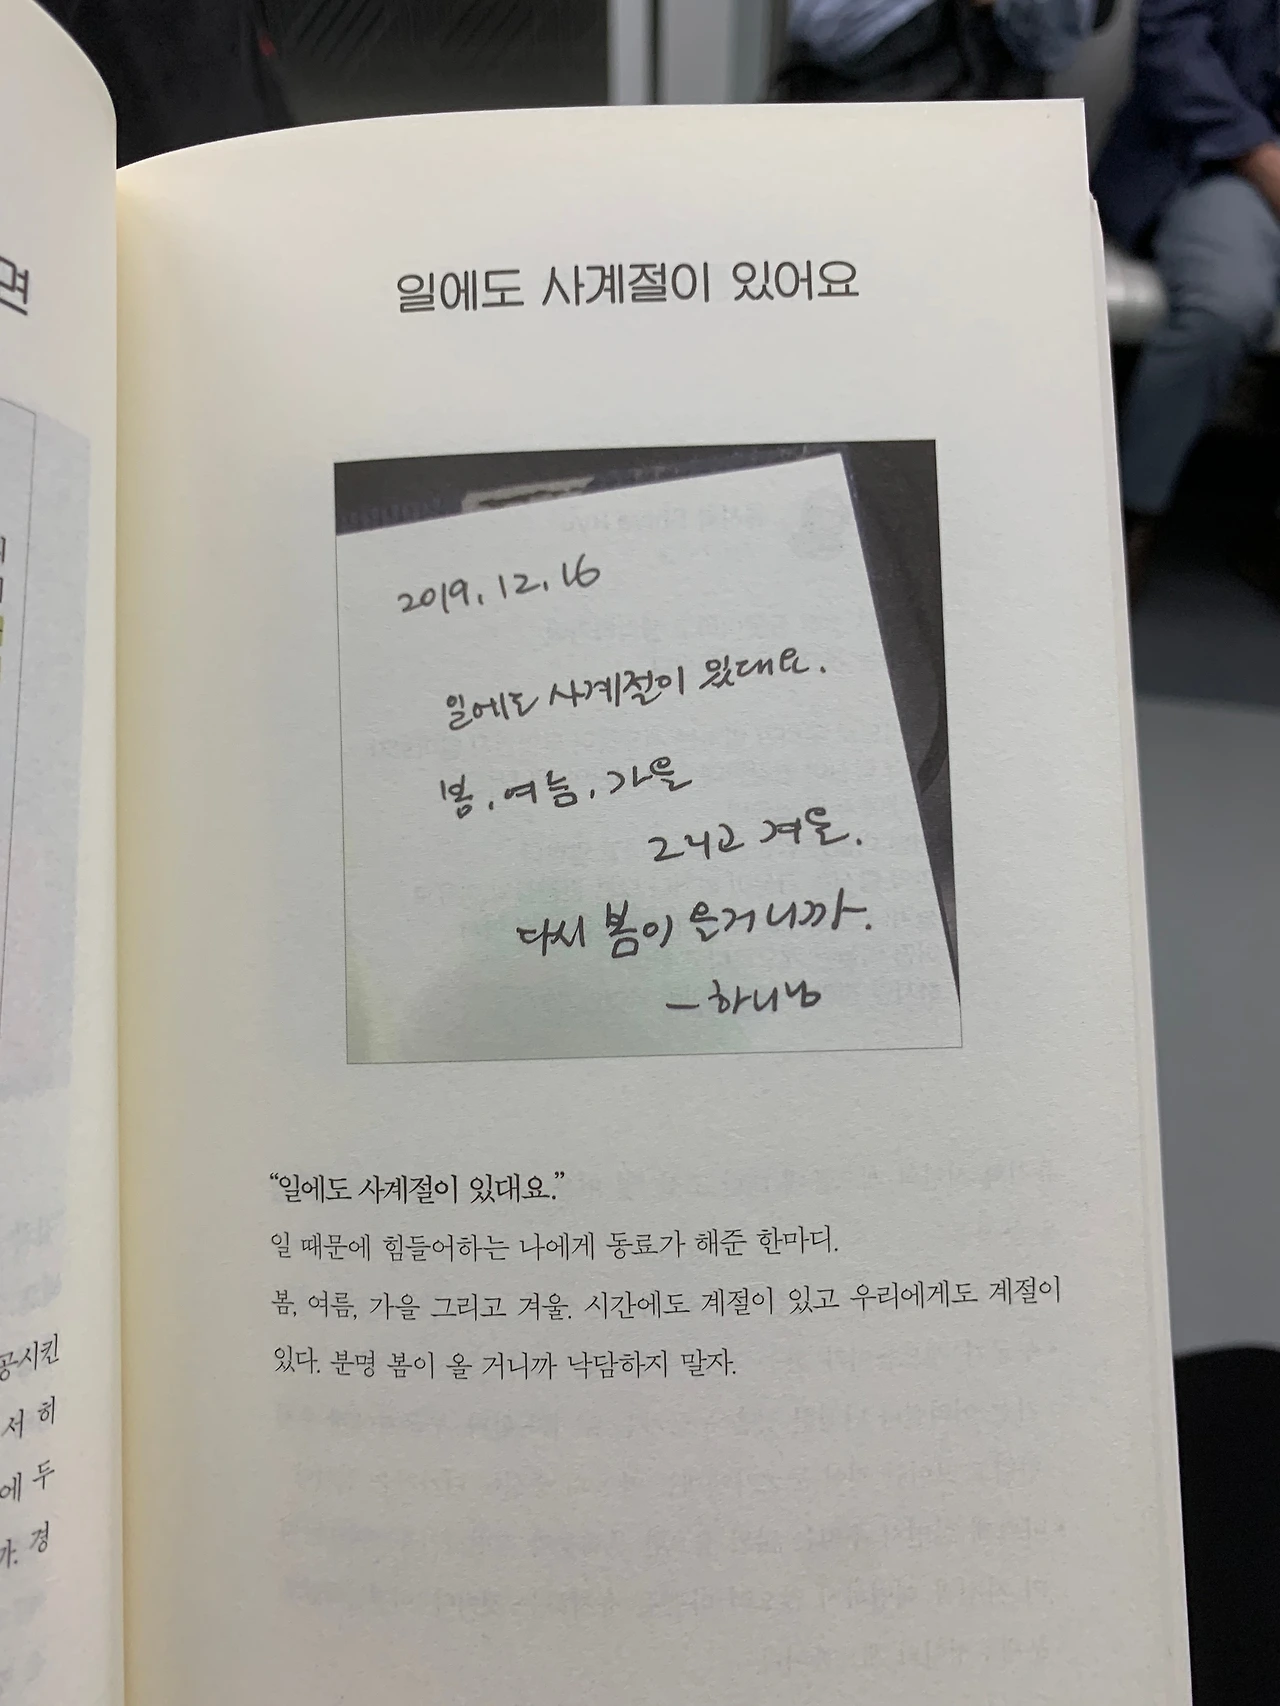 면
일에도 사계절이 있어요
2019. 12. 16
일에도 사계절이 있대요.
봄, 여름, 가을
그리고 겨울.
다시 봄이 올거니까.
- 하니님
“일에도 사계절이 있대요.”
일 때문에 힘들어하는 나에게 동료가 해준 한마디.
봄, 여름, 가을 그리고 겨울. 시간에도 계절이 있고 우리에게도 계절이
있다. 분명 봄이 올 거니까 낙담하지 말자.
공시킨
서 히
에 두
가. 경